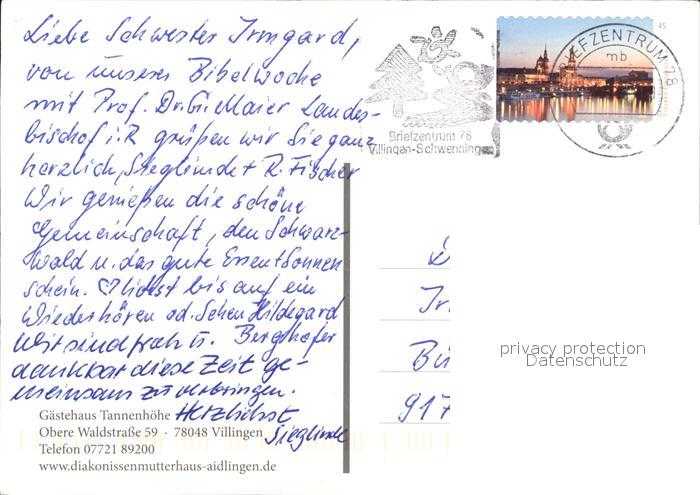 Liebe Schwester Irmgard,
von unserer Bibelwoche
mit Prof. Dr. G. Maier Landes-
bischof i.R grüßen wir Sie ganz
herzlich, Sieglinde + R. Fischer
Wir genießen die schöne
Gemeinschaft, den Schwarz-
wald u. das gute Essen + Sonnen
schein. ♡lichst bis auf ein
Wiederhören od. Sehen Hildegard
Wir sind froh u. Berghofer
dankbar diese Zeit ge-
meinsam zu verbringen.
Herzlichst
Sieglinde
Gästehaus Tannenhöhe
Obere Waldstraße 59 · 78048 Villingen
Telefon 07721 89200
www.diakonissenmutterhaus-aidlingen.de
Briefzentrum 78
Villingen-Schwenningen
45
BRIEFZENTRUM 78
mb
Bü
917
privacy protection
Datenschutz